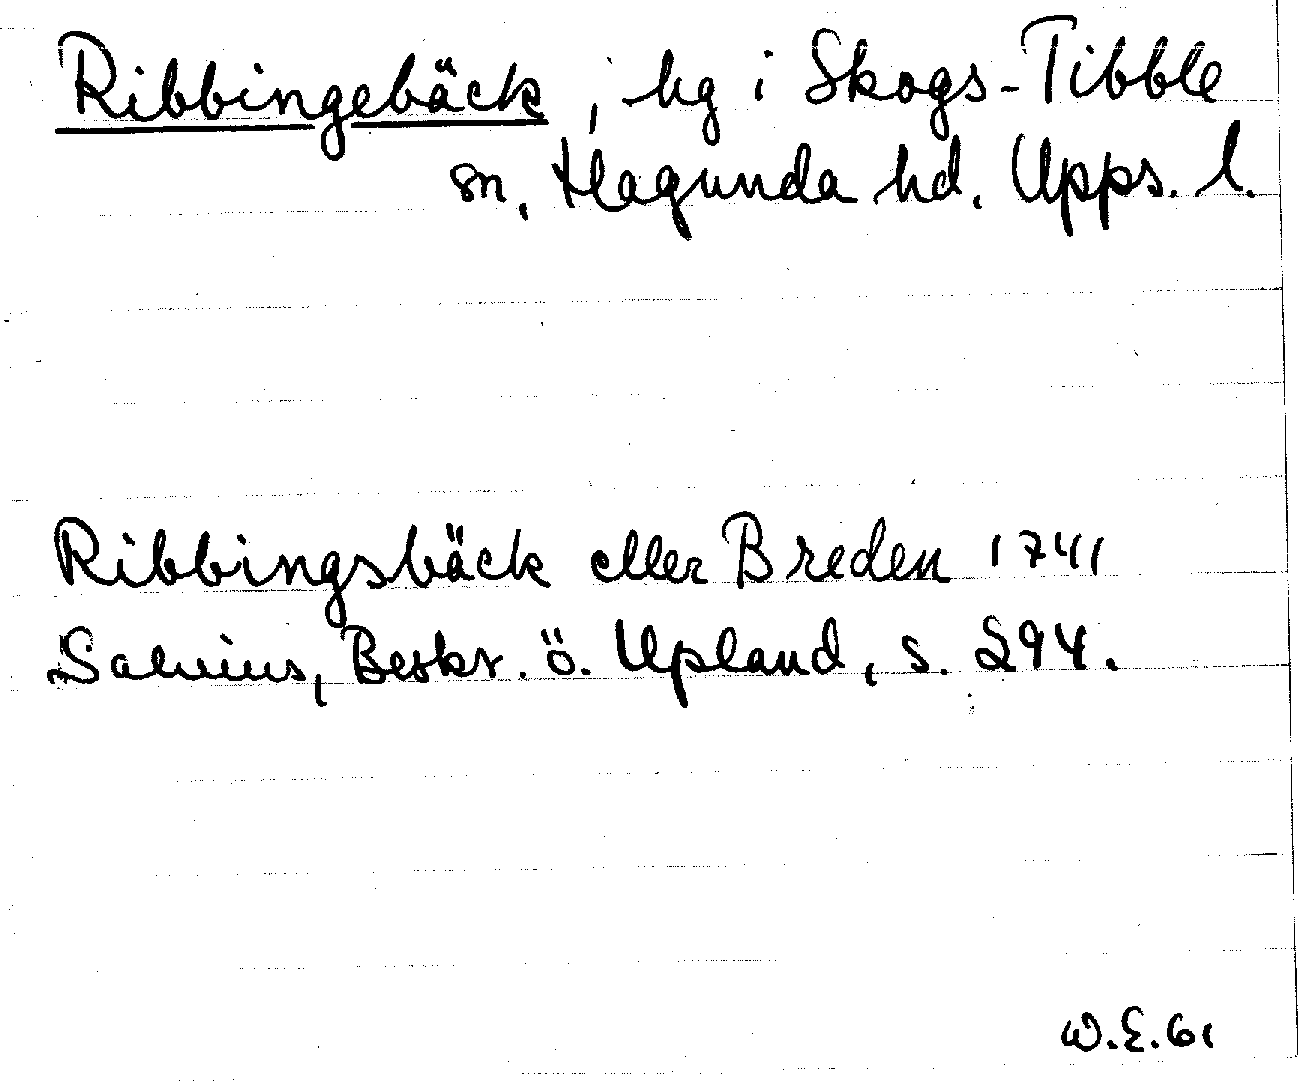 Ribbingebäck, hg i Skogs-Tibble
sn, Hagunda hd. Upps. l.
Ribbingsbäck eller Breden 1741
Salvius, Beskr. ö. Upland, s. 294.
W.E.61